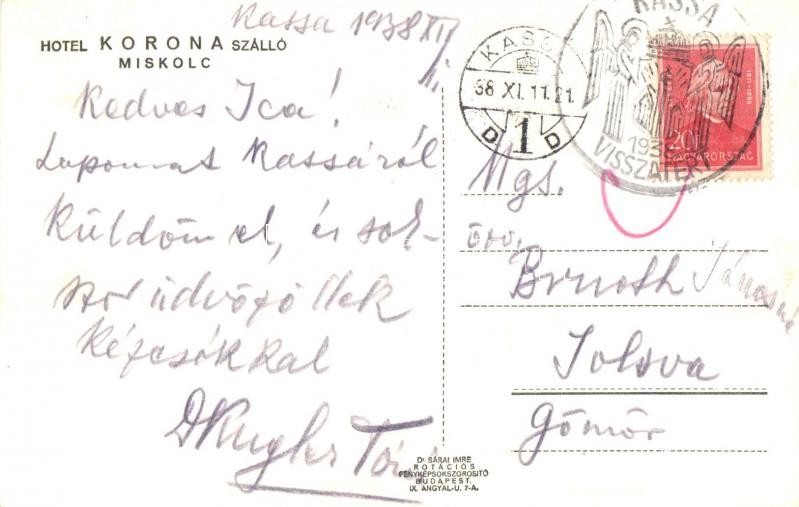 HOTEL KORONA SZÁLLÓ
MISKOLC
Kassa 1938 XI/
11.
Kedves Ica!
Lapomat Kassáról
küldöm el, és sok-
szor üdvözöllek
kézcsókkal
Dr Kugler
KASSA
38 XI. 11. 21.
D 1 D
KASSA
1938
VISSZATÉRT
20f
MAGYARORSZÁG
1811-1886
Mgs.
özv.
Brnoth Jánosné
Jolsva
Gömör
Dr SÁRAI IMRE
ROTÁCIÓS
FÉNYKÉPSOKSZOROSITÓ
BUDAPEST,
IX. ANGYAL-U. 7-A.